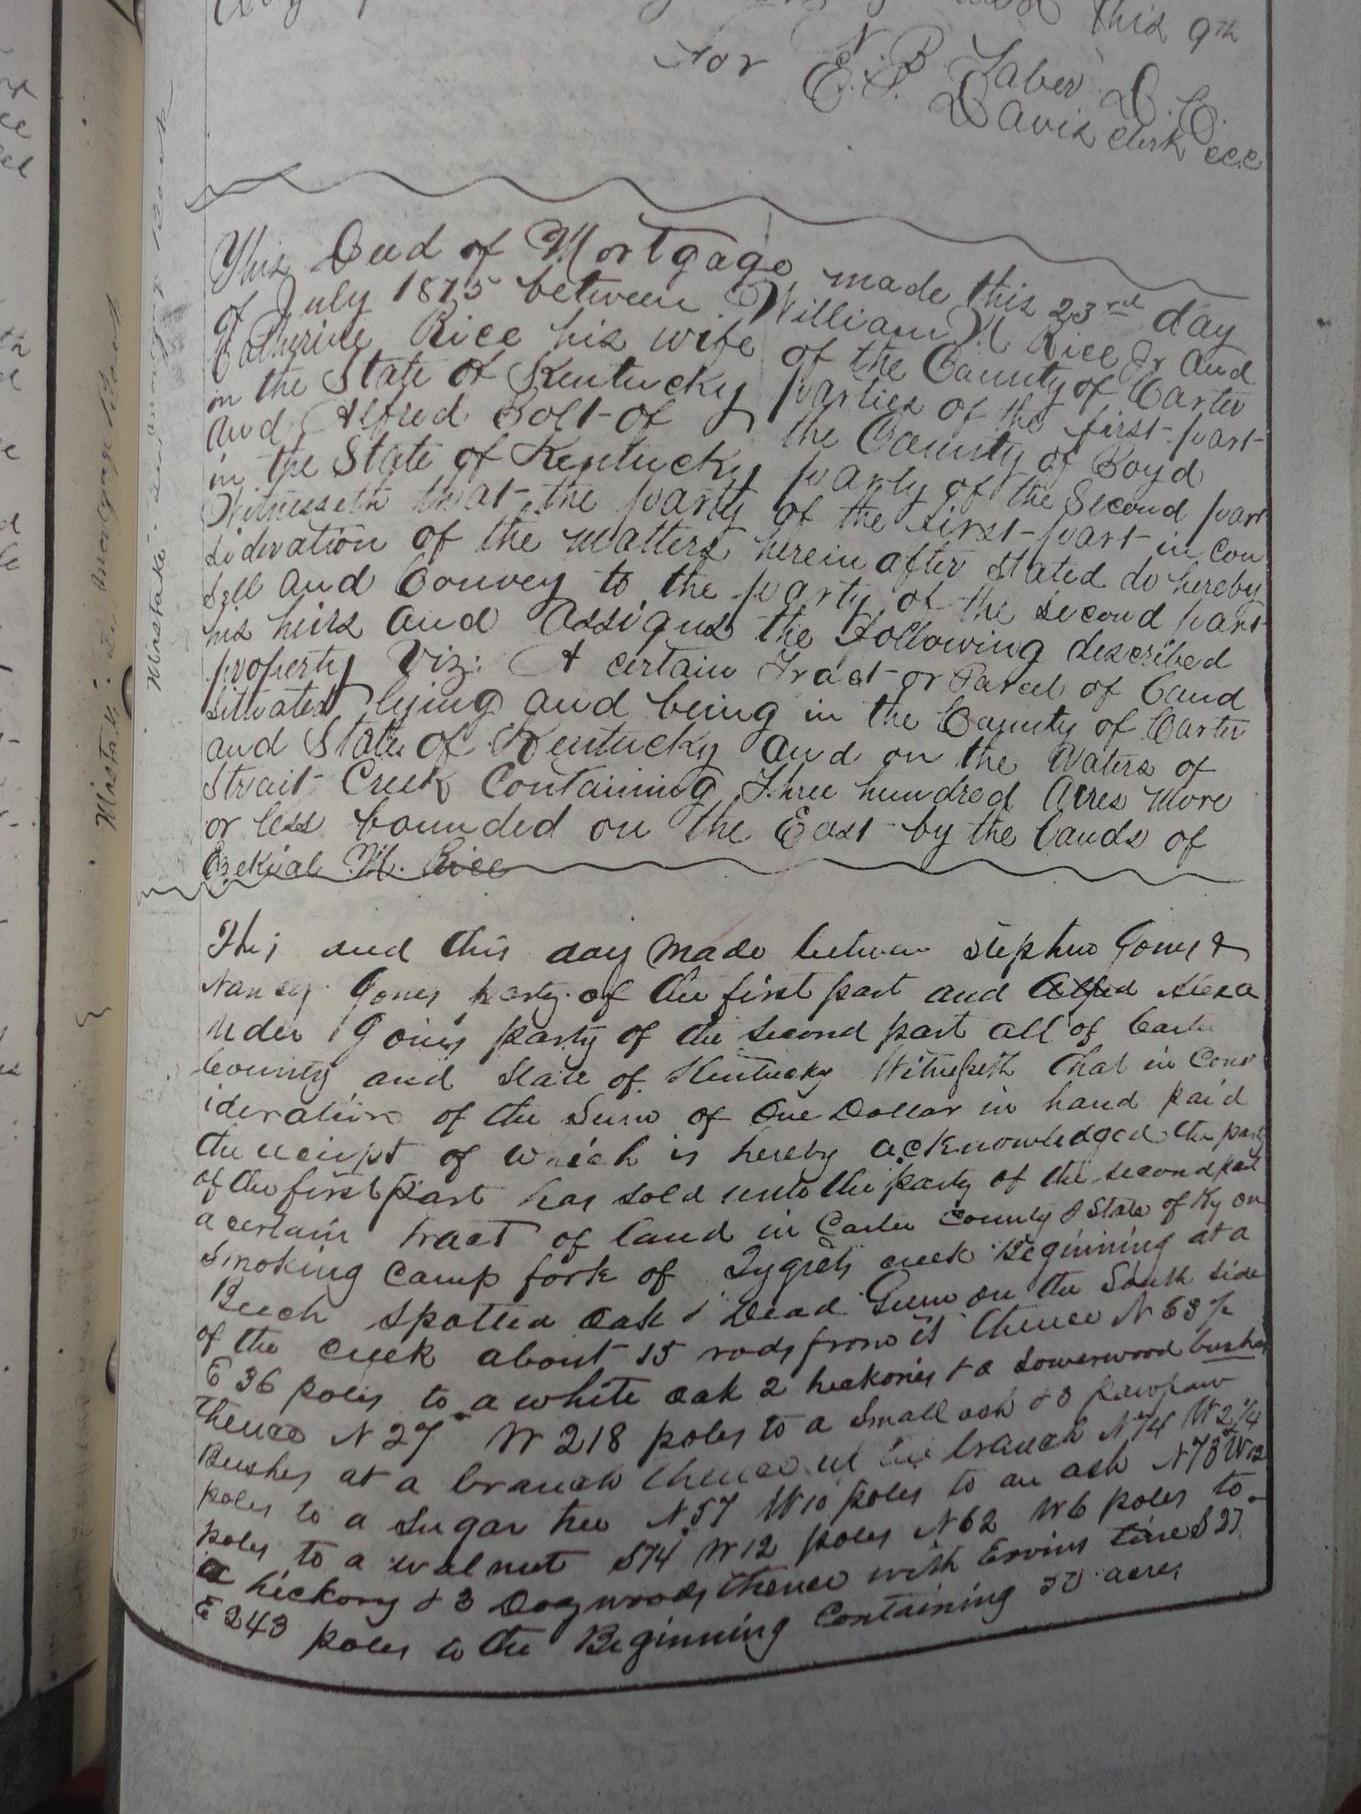 this 9th
For N. B. Taber D. C.
E. S. Davis clerk ccc
This Deed of Mortgage made this 23rd day
of July 1875 between William M Rice Jr and
Catherine Rice his wife of the County of Carter
in the State of Kentucky parties of the first part
and Alfred Bolt of the County of Boyd
in the State of Kentucky party of the Second part
Witnesseth that the party of the first part in con
sideration of the matters herein after stated do hereby
Sell and Convey to the party of the second part
his heirs and assigns the following described
property Viz: A certain Tract or Parcel of Land
situated lying and being in the County of Carter
and State of Kentucky and on the Waters of
Strait Creek Containing Three hundred Acres more
or less bounded on the East by the lands of
Ezekial M. Rice
Mistake: in mortgage Book
This and this day made between Stephen Goney &
Nancy Goney party of the first part and Alfred Alexa
nder Goney party of the second part all of Carter
County and State of Kentucky Witnesseth that in Cons
ideration of the Sum of One Dollar in hand paid
the reciept of which is hereby acknowledged the party
of the first part has sold unto the party of the second part
a certain tract of land in Carter County & State of Ky on
Smoking Camp fork of Tygrets creek Beginning at a
Beech spotted oak & Dead Gum on the South side
of the creek about 15 rods from it thence N 63
E 36 poles to a white oak 2 hickories & a sowerwood bushes
thence N 27 W 218 poles to a small ash & 3 pawpaw
Bushes at a branch thence up the branch N 74 W 21/4
poles to a Sugar tree N 57 W 10 poles to an ash N 73 W 12
poles to a walnut S 74 W 12 poles N 62 W 6 poles to
a hickory & 3 Dogwoods thence with Ervins line S 27
E 243 poles to the Beginning Containing 50 acres